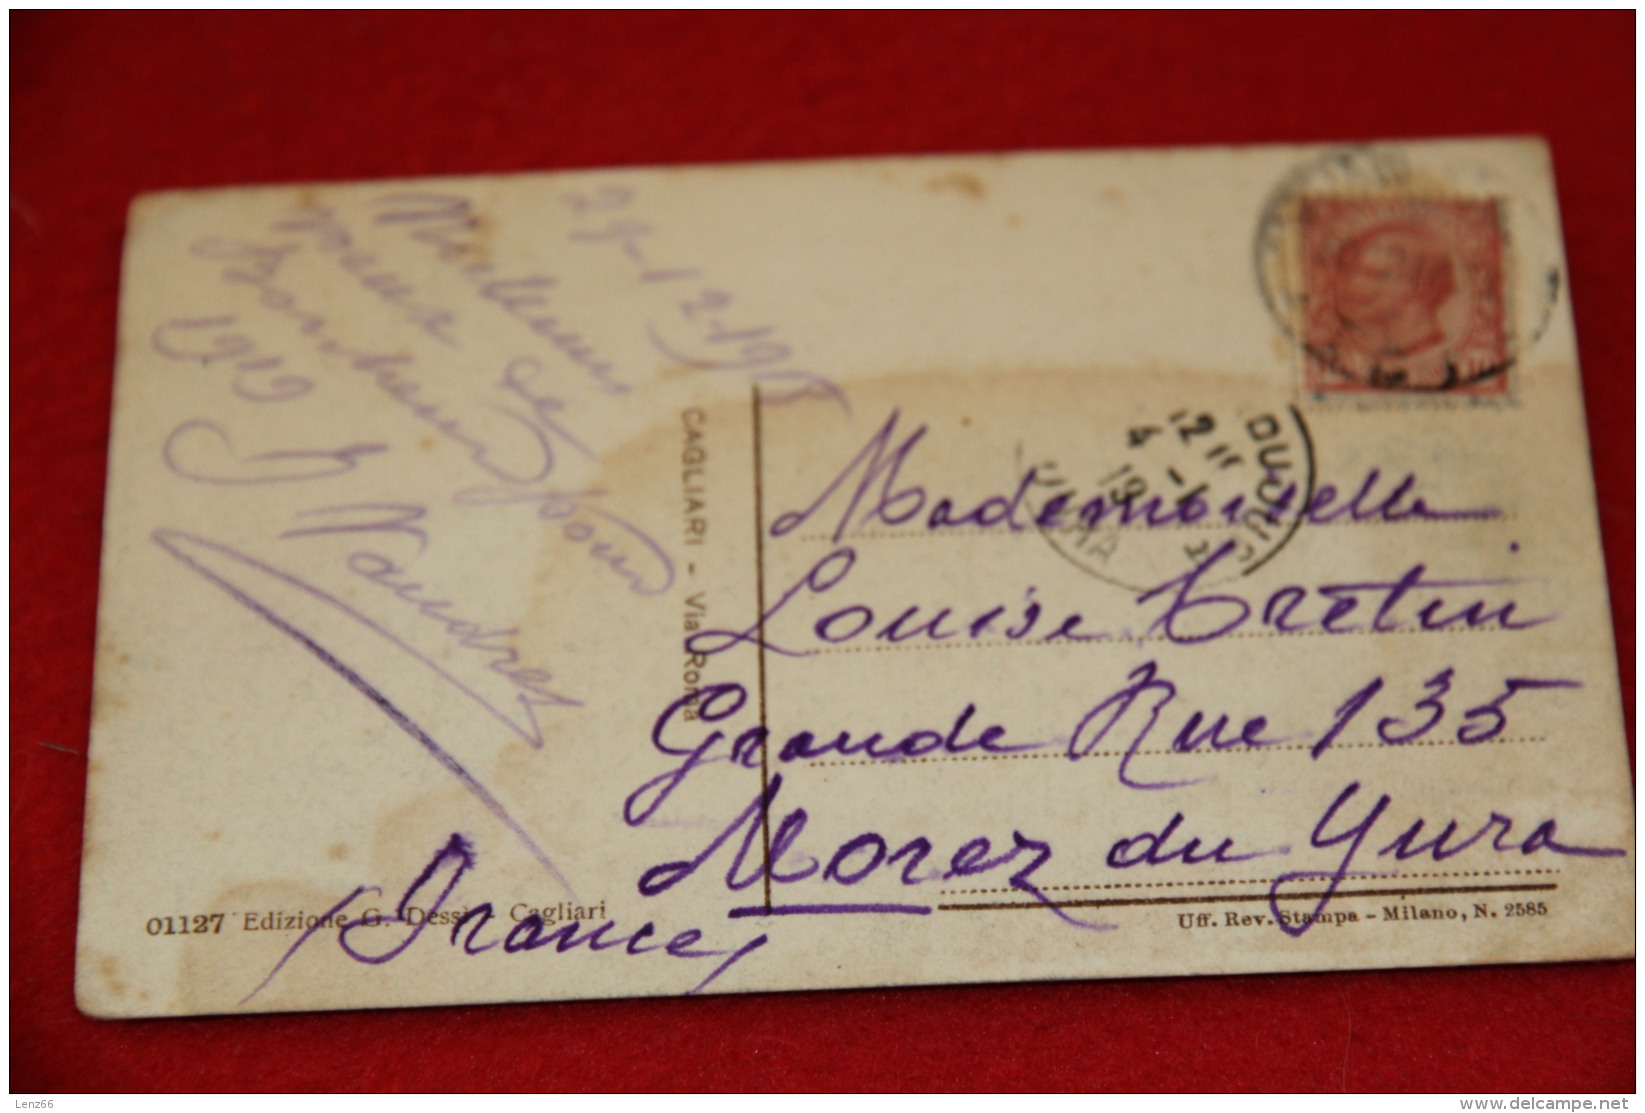 29-12-1918
Meilleurs
voeux de
Bonheur pour
1919
Vaudret
CAGLIARI - Via Roma
Mademoiselle
Louise Cretin
Grande Rue 135
Morez du Jura
(France)
01127 Edizione G. Dessì - Cagliari
Uff. Rev. Stampa - Milano, N. 2585
12 II
4 - 1
19
Lenz66
delcampe.net